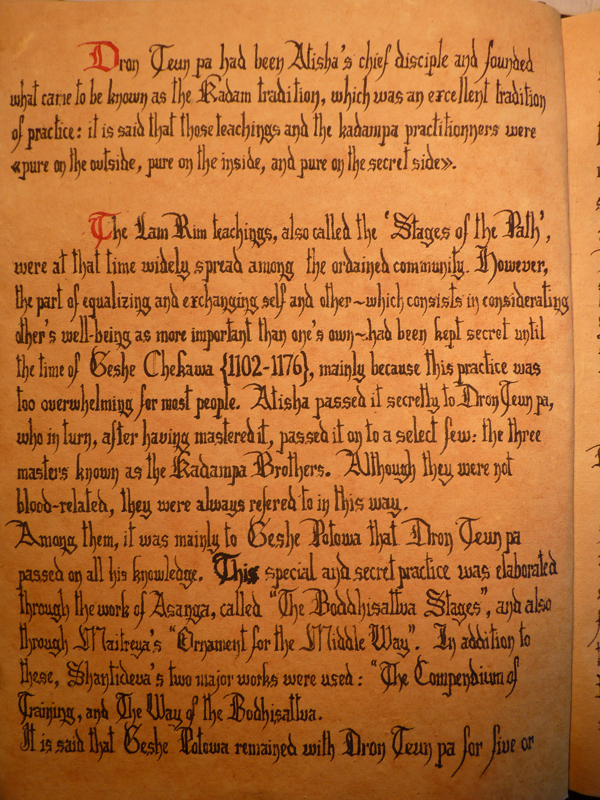 Dron Teun pa had been Atisha's chief disciple and founded
what came to be known as the Kadam tradition, which was an excellent tradition
of practice: it is said that those teachings and the kadampa practitionners were
«pure on the outside, pure on the inside, and pure on the secret side».
The Lam Rim teachings, also called the 'Stages of the Path',
were at that time widely spread among the ordained community. However,
the part of equalizing and exchanging self and other~which consists in considerating
other's well-being as more important than one's own~had been kept secret until
the time of Geshe Chekawa {1102-1176}, mainly because this practice was
too overwhelming for most people. Atisha passed it secretly to Dron Teun pa,
who in turn, after having mastered it, passed it on to a select few: the three
masters known as the Kadampa Brothers. Although they were not
blood-related, they were always refered to in this way.
Among them, it was mainly to Geshe Potowa that Dron Teun pa
passed on all his knowledge. This special and secret practice was elaborated
through the work of Asanga, called "The Boddhisattva Stages", and also
through Maitreya's "Ornament for the Middle Way". In addition to
these, Shantideva's two major works were used : "The Compendium of
Training, and The Way of the Bodhisattva.
It is said that Geshe Potowa remained with Dron Teun pa for five or